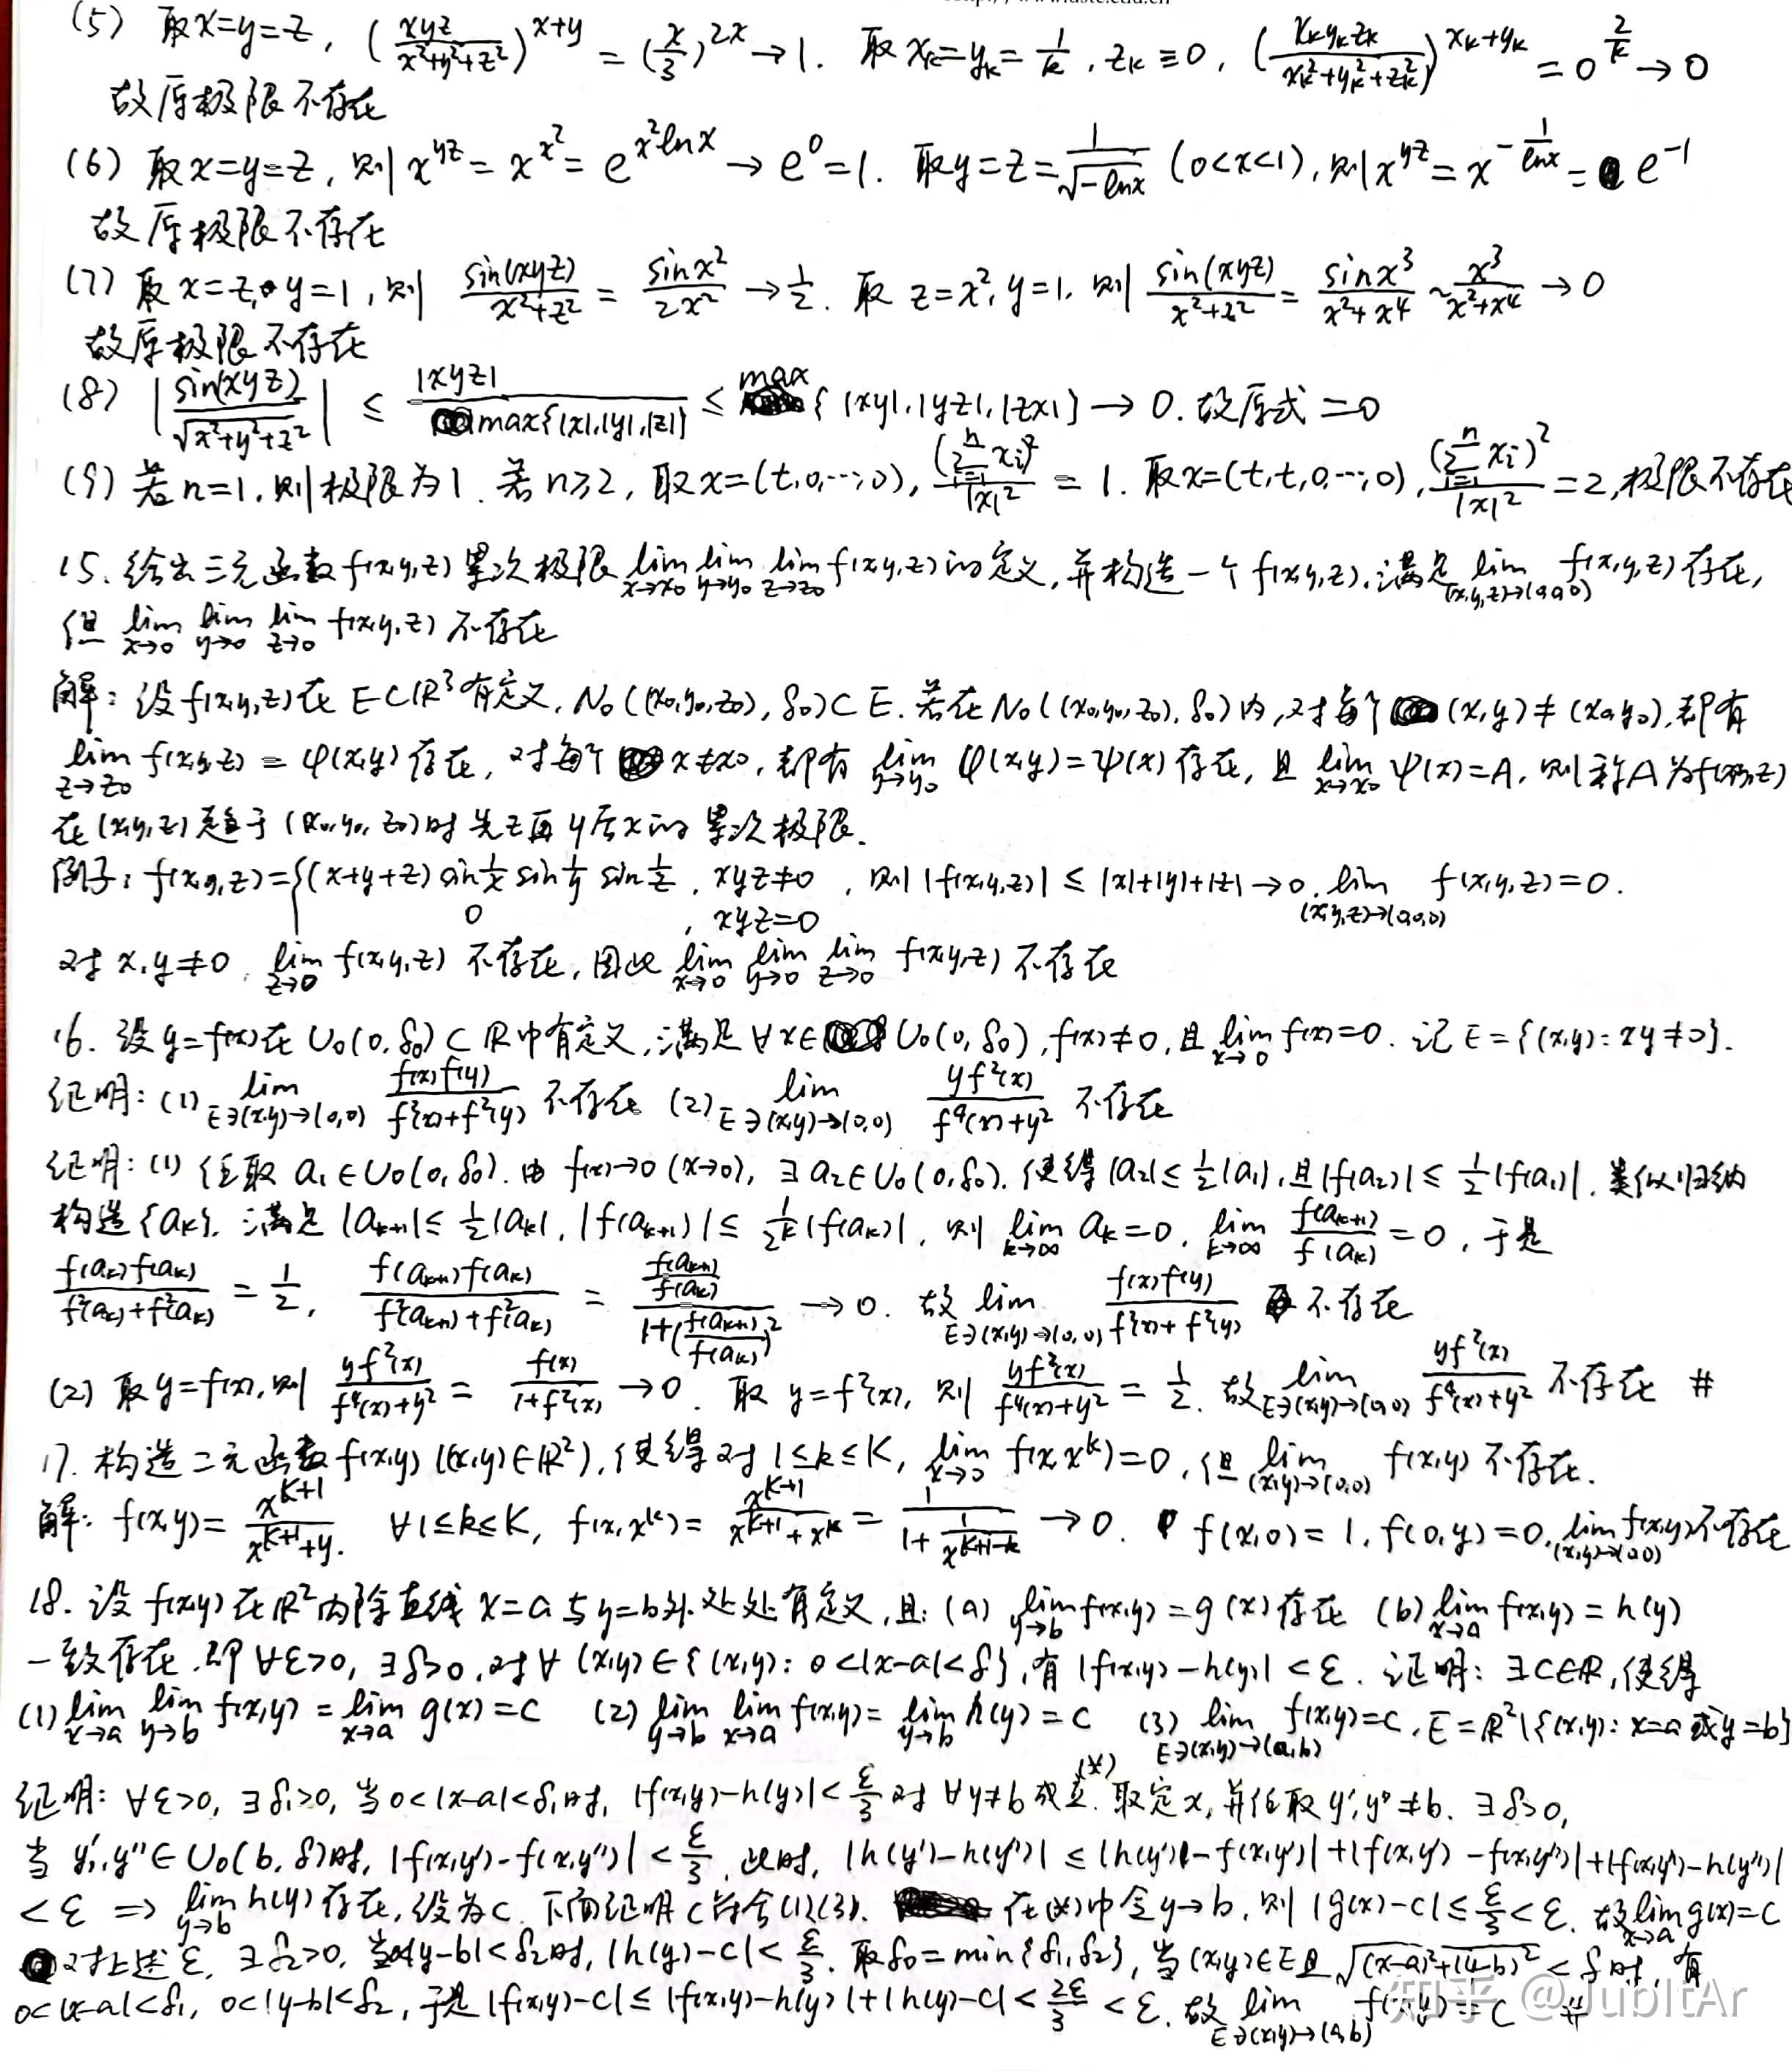 (5) 取x=y=z, (xyz/(x²+y²+z²))^(x+y) = (x/3)^(2x) → 1. 取 x_k=y_k=1/k, z_k≡0, (x_k y_k z_k/(x_k²+y_k²+z_k²))^(x_k+y_k) = 0^(2/k) → 0
故原极限不存在
(6) 取x=y=z, 则 x^(yz) = x^(x²) = e^(x²lnx) → e^0=1. 取y=z=1/√(-lnx) (0<x<1), 则 x^(yz) = x^(-1/lnx) = e^(-1)
故原极限不存在
(7) 取 x=z, y=1, 则 sin(xyz)/(x²+z²) = sinx²/(2x²) → 1/2. 取 z=x², y=1, 则 sin(xyz)/(x²+z²) = sinx³/(x²+x⁴) ~ x³/(x²+x⁴) → 0
故原极限不存在
(8) |sin(xyz)/√(x²+y²+z²)| ≤ |xyz|/max{|x|,|y|,|z|} ≤ max{|xy|,|yz|,|zx|} → 0. 故原式=0
(9) 若n=1, 则极限为1. 若n≥2, 取x=(t,0,…,0), (∑_{i=1}^n x_i)²/|x|² = 1. 取x=(t,t,0,…,0), (∑_{i=1}^n x_i)²/|x|² = 2, 极限不存在
15. 给出三元函数f(x,y,z)累次极限 lim_{x→x₀} lim_{y→y₀} lim_{z→z₀} f(x,y,z)的定义, 并构造一个f(x,y,z), 满足 lim_{(x,y,z)→(0,0,0)} f(x,y,z)存在,
但 lim_{x→0} lim_{y→0} lim_{z→0} f(x,y,z) 不存在
解: 设f(x,y,z)在E⊂ℝ³有定义, N₀((x₀,y₀,z₀), δ₀)⊂E. 若在N₀((x₀,y₀,z₀), δ₀)内, 对每个(x,y)≠(x₀,y₀), 都有
lim_{z→z₀} f(x,y,z) = φ(x,y)存在, 对每个x≠x₀, 都有 lim_{y→y₀} φ(x,y)=ψ(x)存在, 且 lim_{x→x₀} ψ(x)=A, 则称A为f(x,y,z)
在(x,y,z)趋于(x₀,y₀,z₀)时先z再y后x的累次极限.
例子: f(x,y,z)={(x+y+z) sin1/x sin1/y sin1/z, xyz≠0, 则|f(x,y,z)| ≤ |x|+|y|+|z| → 0, lim_{(x,y,z)→(0,0,0)} f(x,y,z)=0.
0, xyz=0
对x,y≠0, lim_{z→0} f(x,y,z) 不存在, 因此 lim_{x→0} lim_{y→0} lim_{z→0} f(x,y,z) 不存在
16. 设y=f(x)在U₀(0,δ₀)⊂ℝ中有定义, 满足∀x∈U₀(0,δ₀), f(x)≠0, 且 lim_{x→0} f(x)=0. 记E={(x,y): xy≠0}.
证明: (1) lim_{E∋(x,y)→(0,0)} f(x)f(y)/(f²(x)+f²(y)) 不存在 (2) lim_{E∋(x,y)→(0,0)} yf²(x)/(f⁴(x)+y²) 不存在
证明: (1) 任取a₁∈U₀(0,δ₀). 由f(x)→0 (x→0), ∃a₂∈U₀(0,δ₀), 使得|a₂|≤1/2|a₁|, 且|f(a₂)|≤1/2|f(a₁)|. 类似归纳
构造{a_k}, 满足|a_{k+1}|≤1/2|a_k|, |f(a_{k+1})|≤1/2^k|f(a_k)|, 则 lim_{k→∞} a_k=0, lim_{k→∞} f(a_{k+1})/f(a_k)=0, 于是
f(a_k)f(a_k)/(f²(a_k)+f²(a_k)) = 1/2, f(a_{k+1})f(a_k)/(f²(a_{k+1})+f²(a_k)) = (f(a_{k+1})/f(a_k))/(1+(f(a_{k+1})/f(a_k))²) → 0. 故 lim_{E∋(x,y)→(0,0)} f(x)f(y)/(f²(x)+f²(y)) 不存在
(2) 取y=f(x), 则 yf²(x)/(f⁴(x)+y²) = f(x)/(1+f²(x)) → 0. 取 y=f²(x), 则 yf²(x)/(f⁴(x)+y²) = 1/2. 故 lim_{E∋(x,y)→(0,0)} yf²(x)/(f⁴(x)+y²) 不存在 #
17. 构造二元函数f(x,y) ((x,y)∈ℝ²), 使得对1≤k≤K, lim_{x→0} f(x,x^k)=0, 但 lim_{(x,y)→(0,0)} f(x,y) 不存在.
解: f(x,y)= x^(K+1)/(x^(K+1)+y). ∀1≤k≤K, f(x,x^k)= x^(K+1)/(x^(K+1)+x^k) = 1/(1+1/x^(K+1-k)) → 0. f(x,0)=1, f(0,y)=0, lim_{(x,y)→(0,0)} f(x,y)不存在
18. 设f(x,y)在ℝ²内除直线x=a与y=b外处处有定义, 且: (a) lim_{y→b} f(x,y)=g(x)存在 (b) lim_{x→a} f(x,y)=h(y)
一致存在, 即∀ε>0, ∃δ>0, 对∀(x,y)∈{(x,y): 0<|x-a|<δ}, 有|f(x,y)-h(y)|<ε. 证明: ∃C∈ℝ, 使得
(1) lim_{x→a} lim_{y→b} f(x,y) = lim_{x→a} g(x)=C (2) lim_{y→b} lim_{x→a} f(x,y) = lim_{y→b} h(y)=C (3) lim_{E∋(x,y)→(a,b)} f(x,y)=C, E=ℝ²\{(x,y): x=a或y=b}
证明: ∀ε>0, ∃δ₁>0, 当0<|x-a|<δ₁时, |f(x,y)-h(y)|<ε/3 对∀y≠b成立.(*) 取定x, 并任取y′,y″≠b. ∃δ>0,
当y′,y″∈U₀(b,δ)时, |f(x,y′)-f(x,y″)|<ε/3, 此时, |h(y′)-h(y″)| ≤ |h(y′)-f(x,y′)|+|f(x,y′)-f(x,y″)|+|f(x,y″)-h(y″)|
<ε ⇒ lim_{y→b} h(y)存在, 设为C. 下面证明C符合(1)(3). 在(*)中令y→b, 则|g(x)-C|≤ε/3<ε. 故 lim_{x→a} g(x)=C
对上述ε, ∃δ₂>0, 当0<|y-b|<δ₂时, |h(y)-C|<ε/3. 取δ₀=min{δ₁,δ₂}, 当(x,y)∈E且√((x-a)²+(y-b)²)<δ时, 有
0<|x-a|<δ₁, 0<|y-b|<δ₂, 于是|f(x,y)-C| ≤ |f(x,y)-h(y)|+|h(y)-C| < 2ε/3 < ε. 故 lim_{E∋(x,y)→(a,b)} f(x,y)=C #
知乎 @JubitAr